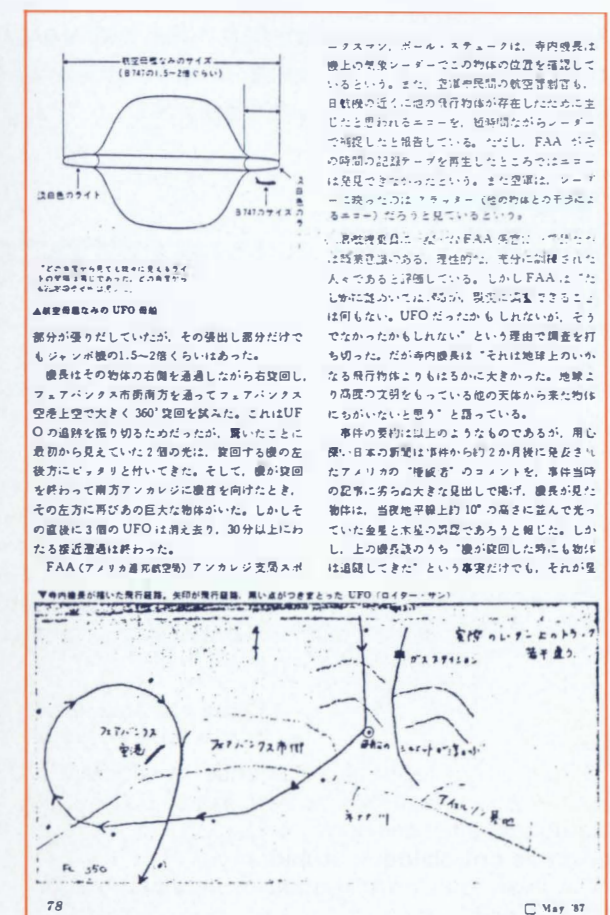 航空母艦なみのサイズ
(B747の1.5〜2倍ぐらい)
淡白色のライト
淡白色のラ
B747のサイズ
▲航空母艦なみの UFO 母船
部分が張りだしていたが、その張出し部分だけで
もジャンボ機の1.5〜2倍くらいはあった。
機長はその物体の右側を通過しながら右旋回し、
フェアバンクス市街南方を通ってフェアバンクス
空港上空で大きく 360°旋回を試みた。これはUF
Oの追跡を振り切るためだったが、驚いたことに
最初から見えていた2個の光は、旋回する機の左
後方にピッタリと付いてきた。そして、機が旋回
を終わって南方アンカレジに機首を向けたとき、
その左方に再びあの巨大な物体がいた。しかしそ
の直後に3個の UFO は消え去り、30分以上にわ
たる接近遭遇は終わった。
FAA(アメリカ連邦航空局)アンカレジ支局スポ
ークスマン、ポール・ステュークは、寺内機長は
機上の気象レーダーでこの物体の位置を確認して
いるという。また、空軍や民間の航空管制官も、
日航機の近くに他の飛行物体が存在したために生
じたと思われるエコーを、短時間ながらレーダー
で捕捉したと報告している。ただし、FAA がそ
の時間の記録テープを再生したところではエコー
は発見できなかったという。また空軍は、レーダ
ーに映ったのは クラッター(他の物体との干渉によ
るエコー)だろうと見ているという。
FAA
は職業意識のある、理性的な、充分に訓練された
人々であると評価している。しかし FAA は
何もない。UFO だったかもしれないが、そう
でなかったかもしれない”という理由で調査を打
ち切った。だが寺内機長は“それは地球上のいか
なる飛行物体よりもはるかに大きかった。地球よ
り高度の文明をもっている他の天体から来た物体
にちがいないと思う”と語っている。
事件の要約は以上のようなものであるが、用心
深い日本の新聞は事件から約2か月後に発表され
たアメリカの“懐疑者”のコメントを、事件当時
の記事に劣らぬ大きな見出しで掲げ、機長が見た
物体は、当夜地平線上約 10°の高さに並んで光っ
ていた金星と木星の誤認であろうと報じた。しか
し、上の機長談のうち“機が旋回した時にも物体
は追随してきた”という事実だけでも、それが星
▼寺内機長が描いた飛行経路。矢印が飛行経路、黒い点がつきまとった UFO(ロイター・サン)
実際のレーダー上のトラック
若干違う
ガスステイション
フェアバンクス
空港
フェアバンクス市街
アイェルソン基地
FL 350
78
May '87